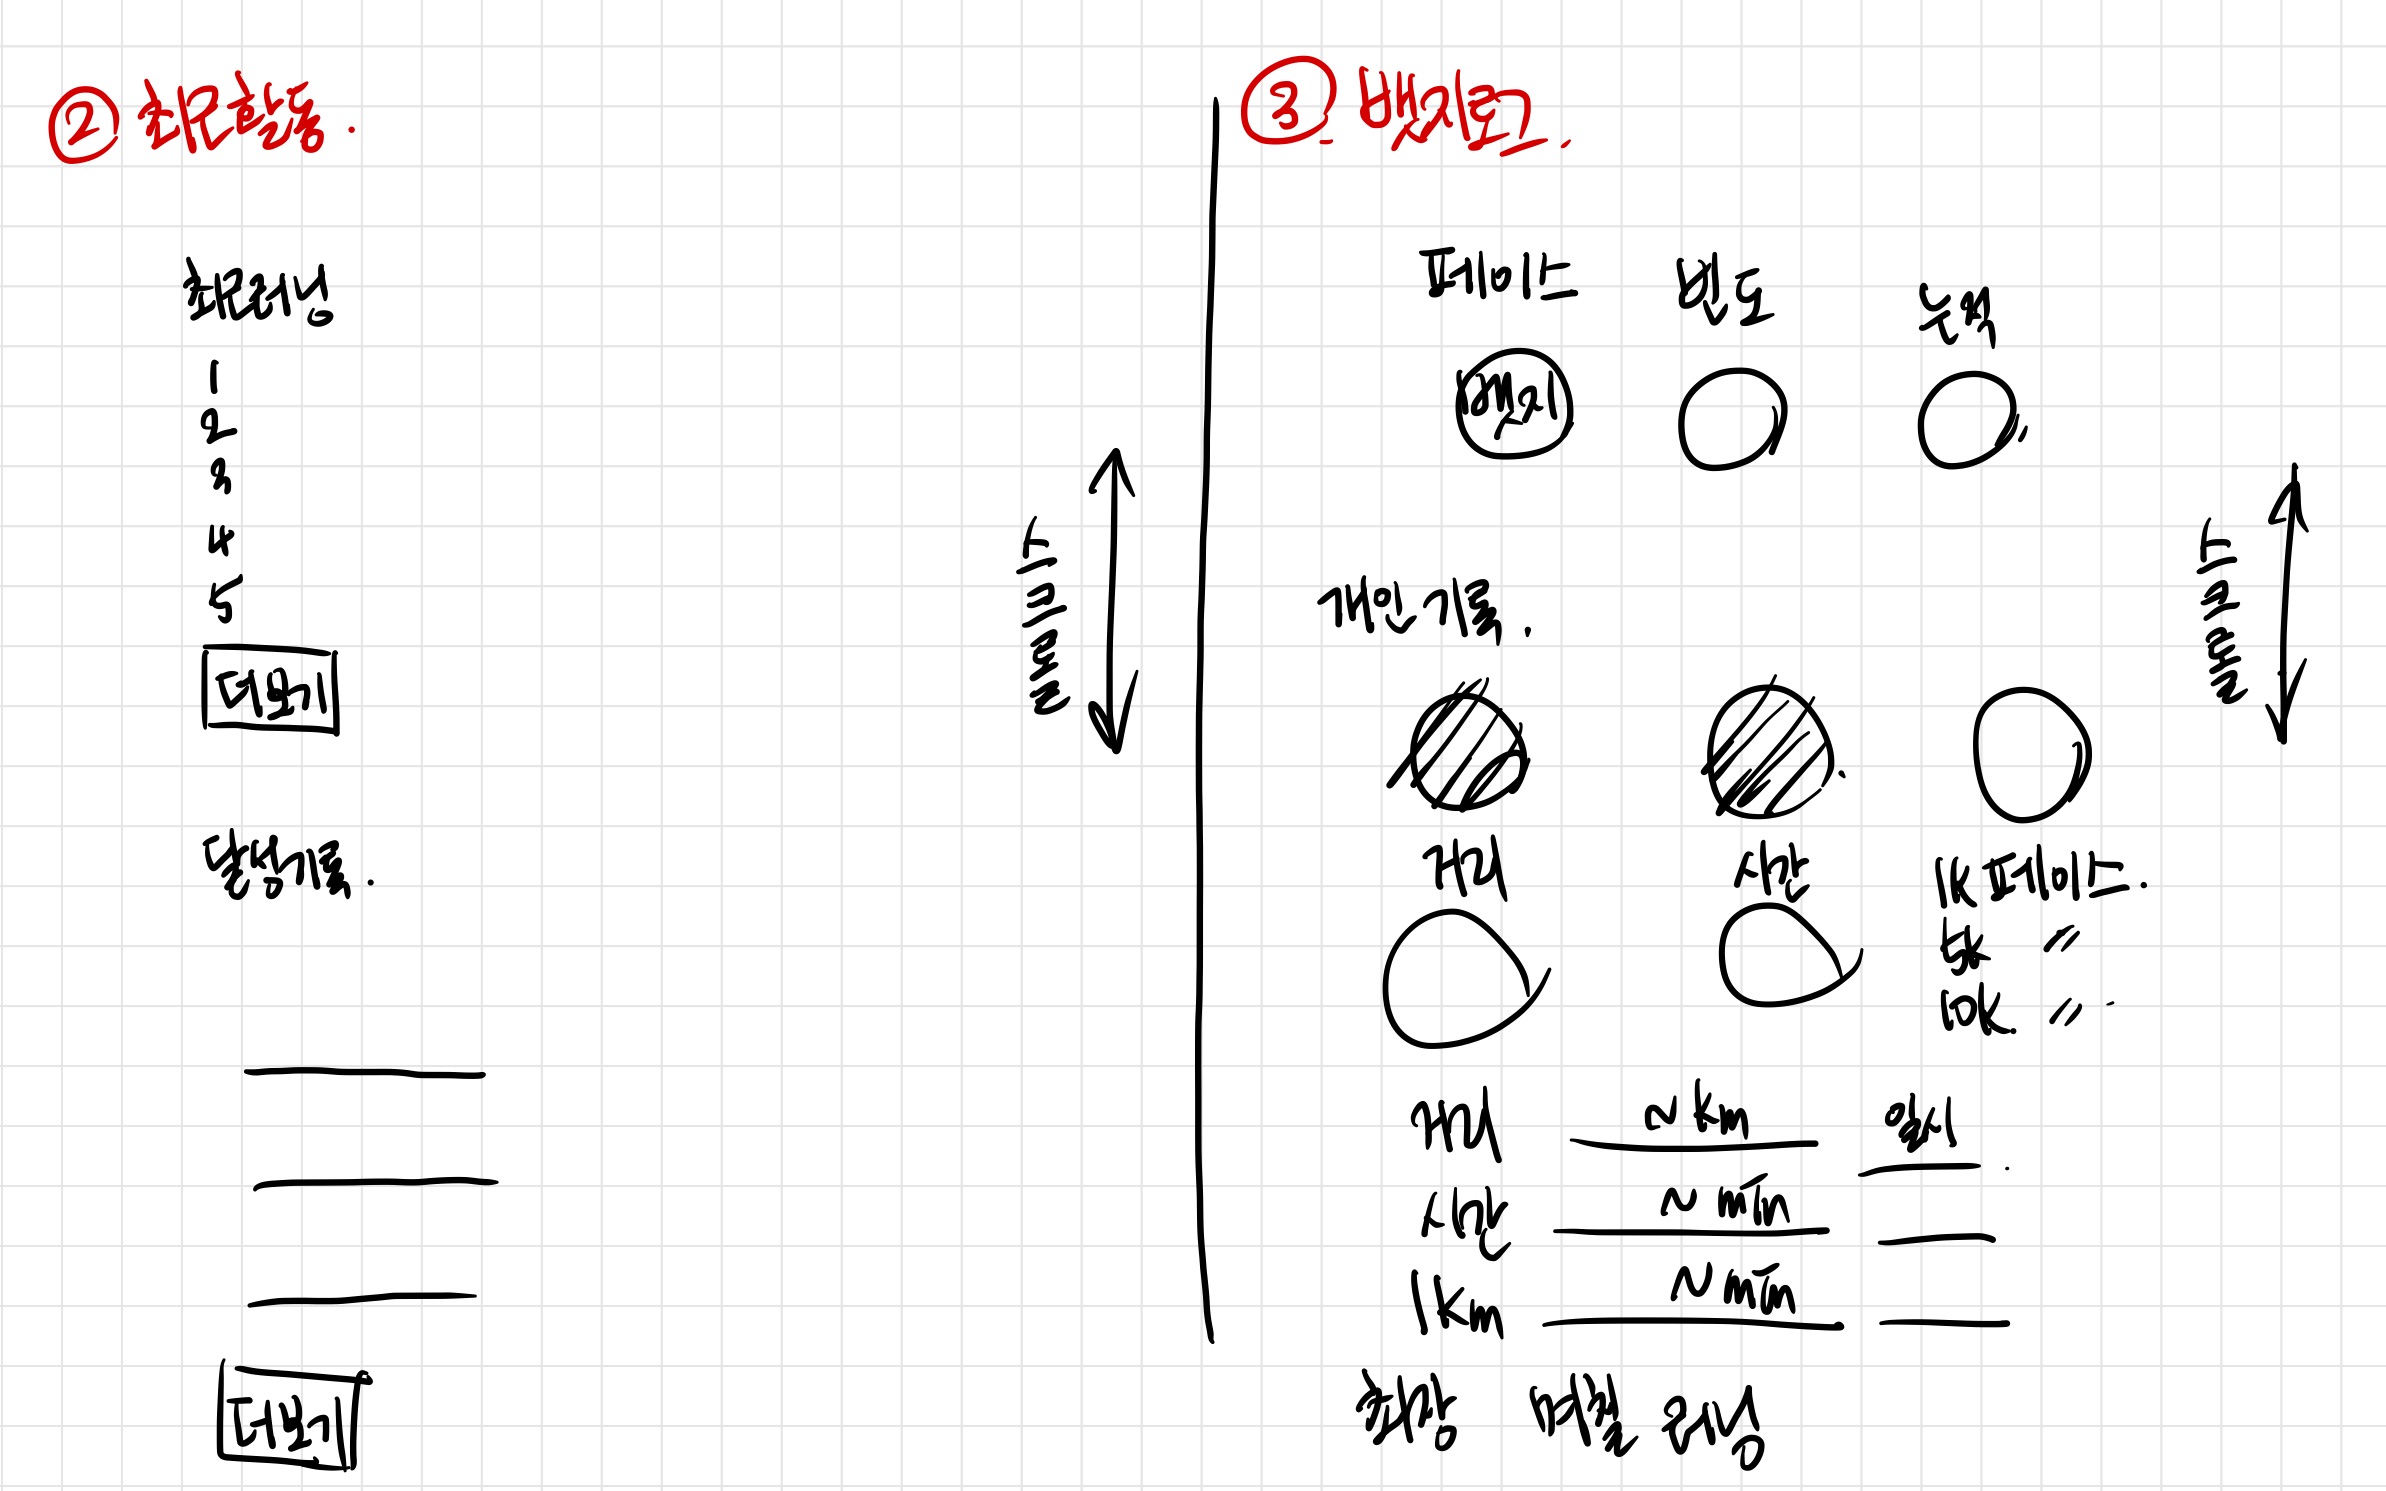 ② 최근활동.
최근러닝
1
2
3
4
5
더보기
달성기록.
더보기
스크롤
③ 뱃지로그.
페이스 빈도 누적
뱃지
개인기록.
스크롤
거리 시간 1K 페이스.
5K 〃
10K. 〃
거리 ~ km 일시
시간 ~ min
1km ~ min
최장 러닝